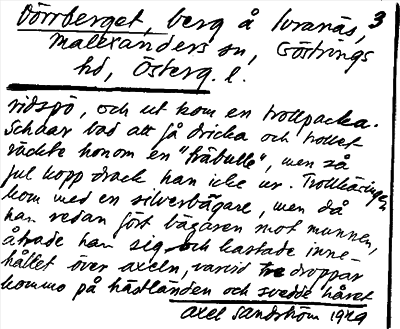 Dörrberget, berg å Svanäs, 3
Malexanders sn, Göstrings
hd, Österg. l.
ridspö, och ut kom en trollpacka.
Schaar bad att få dricka och trollet
räckte honom en "träbulle", men så
ful kopp drack han icke ur. Trollkäringen
kom med en silverbägare, men då
han redan fört bägaren mot munnen,
ångrade han sig och kastade inne-
hållet över axeln, varvid tre droppar
kommo på hästländen och svedde håret
Axel Sandström 1929